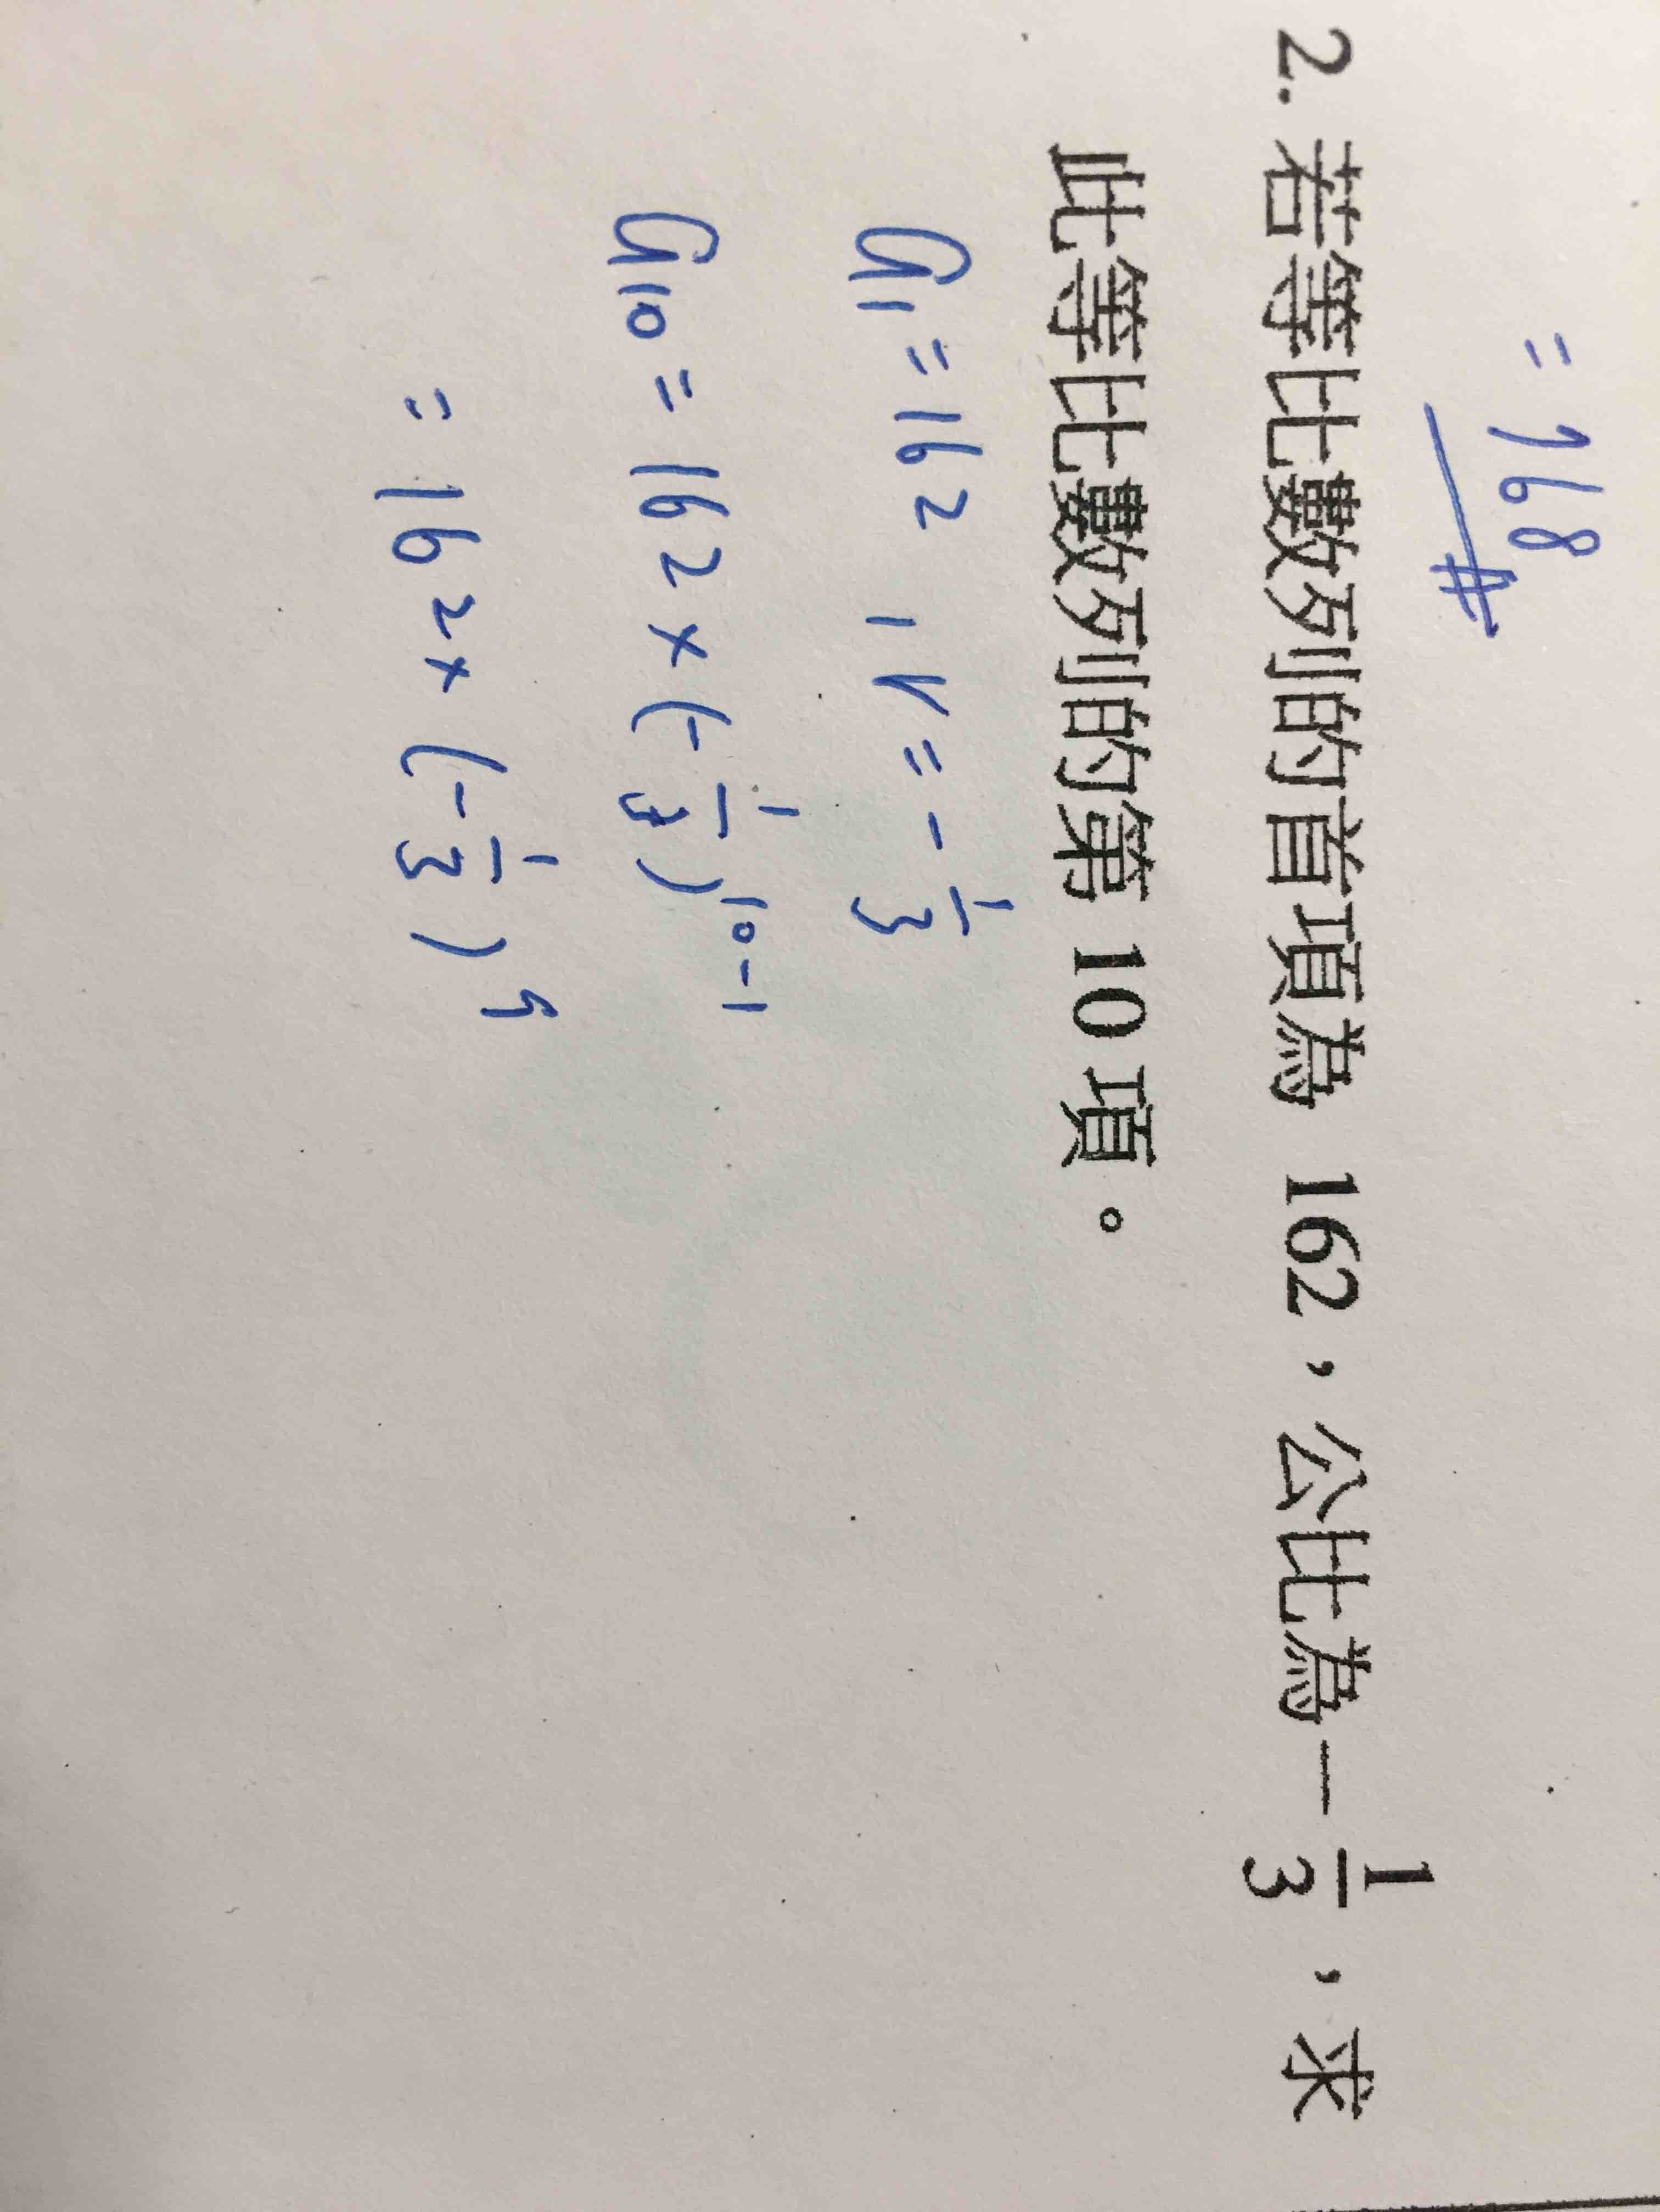 = 768 #
2. 若等比數列的首項為 162，公比為－1/3，求
此等比數列的第 10 項。
a₁ = 162 , r = -1/3
a₁₀ = 162 × (-1/3)¹⁰⁻¹
= 162 × (-1/3)⁹